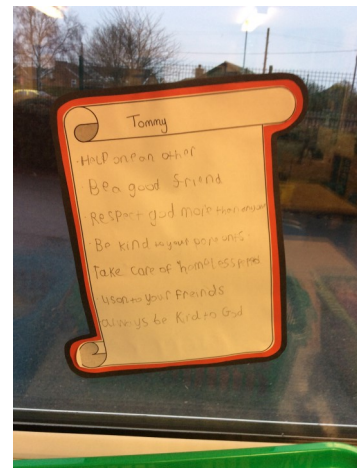 Tommy
·Help one an other
Be a good friend
·Respect god more than
·Be kind to your
Take care of homeless
lison to your Freinds
always be Kind to God